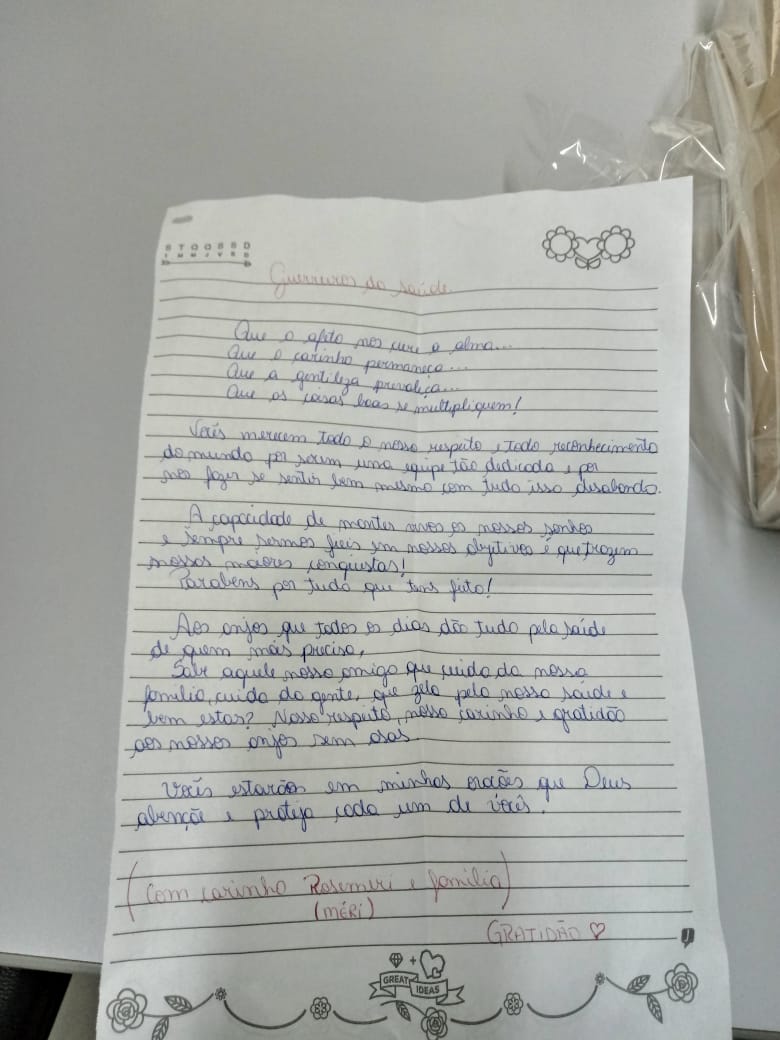 S T Q Q S S D
Guerreiros da saúde.
Que o afeto nos cure a alma...
Que o carinho permaneça...
Que a gentileza prevaleça...
Que as coisas boas se multipliquem!
Vocês merecem todo o nosso respeito e todo reconhecimento
do mundo por serem uma equipe tão dedicada e por
nos fazer se sentir bem mesmo com tudo isso desabando.
A capacidade de mantes vivos os nossos sonhos
e sempre sermos fieis em nossos objetivos é que trazem
nossas maiores conquistas!
Parabens por tudo que tens feito!
Aos anjos que todos os dias dão tudo pela saúde
de quem mais precisa,
Sabe aquele nosso amigo que cuida da nossa
familia, cuida da gente, que zela pela nossa saúde e
bem estar? Nosso respeito, nosso carinho e gratidão
aos nossos anjos sem asas.
Vocês estarão em minhas oracões que Deus
abençõe e proteja cada um de vocês.
(Com carinho Rosemeri e familia)
(MÉRI)
GRATIDÃO ♡
GREAT IDEAS